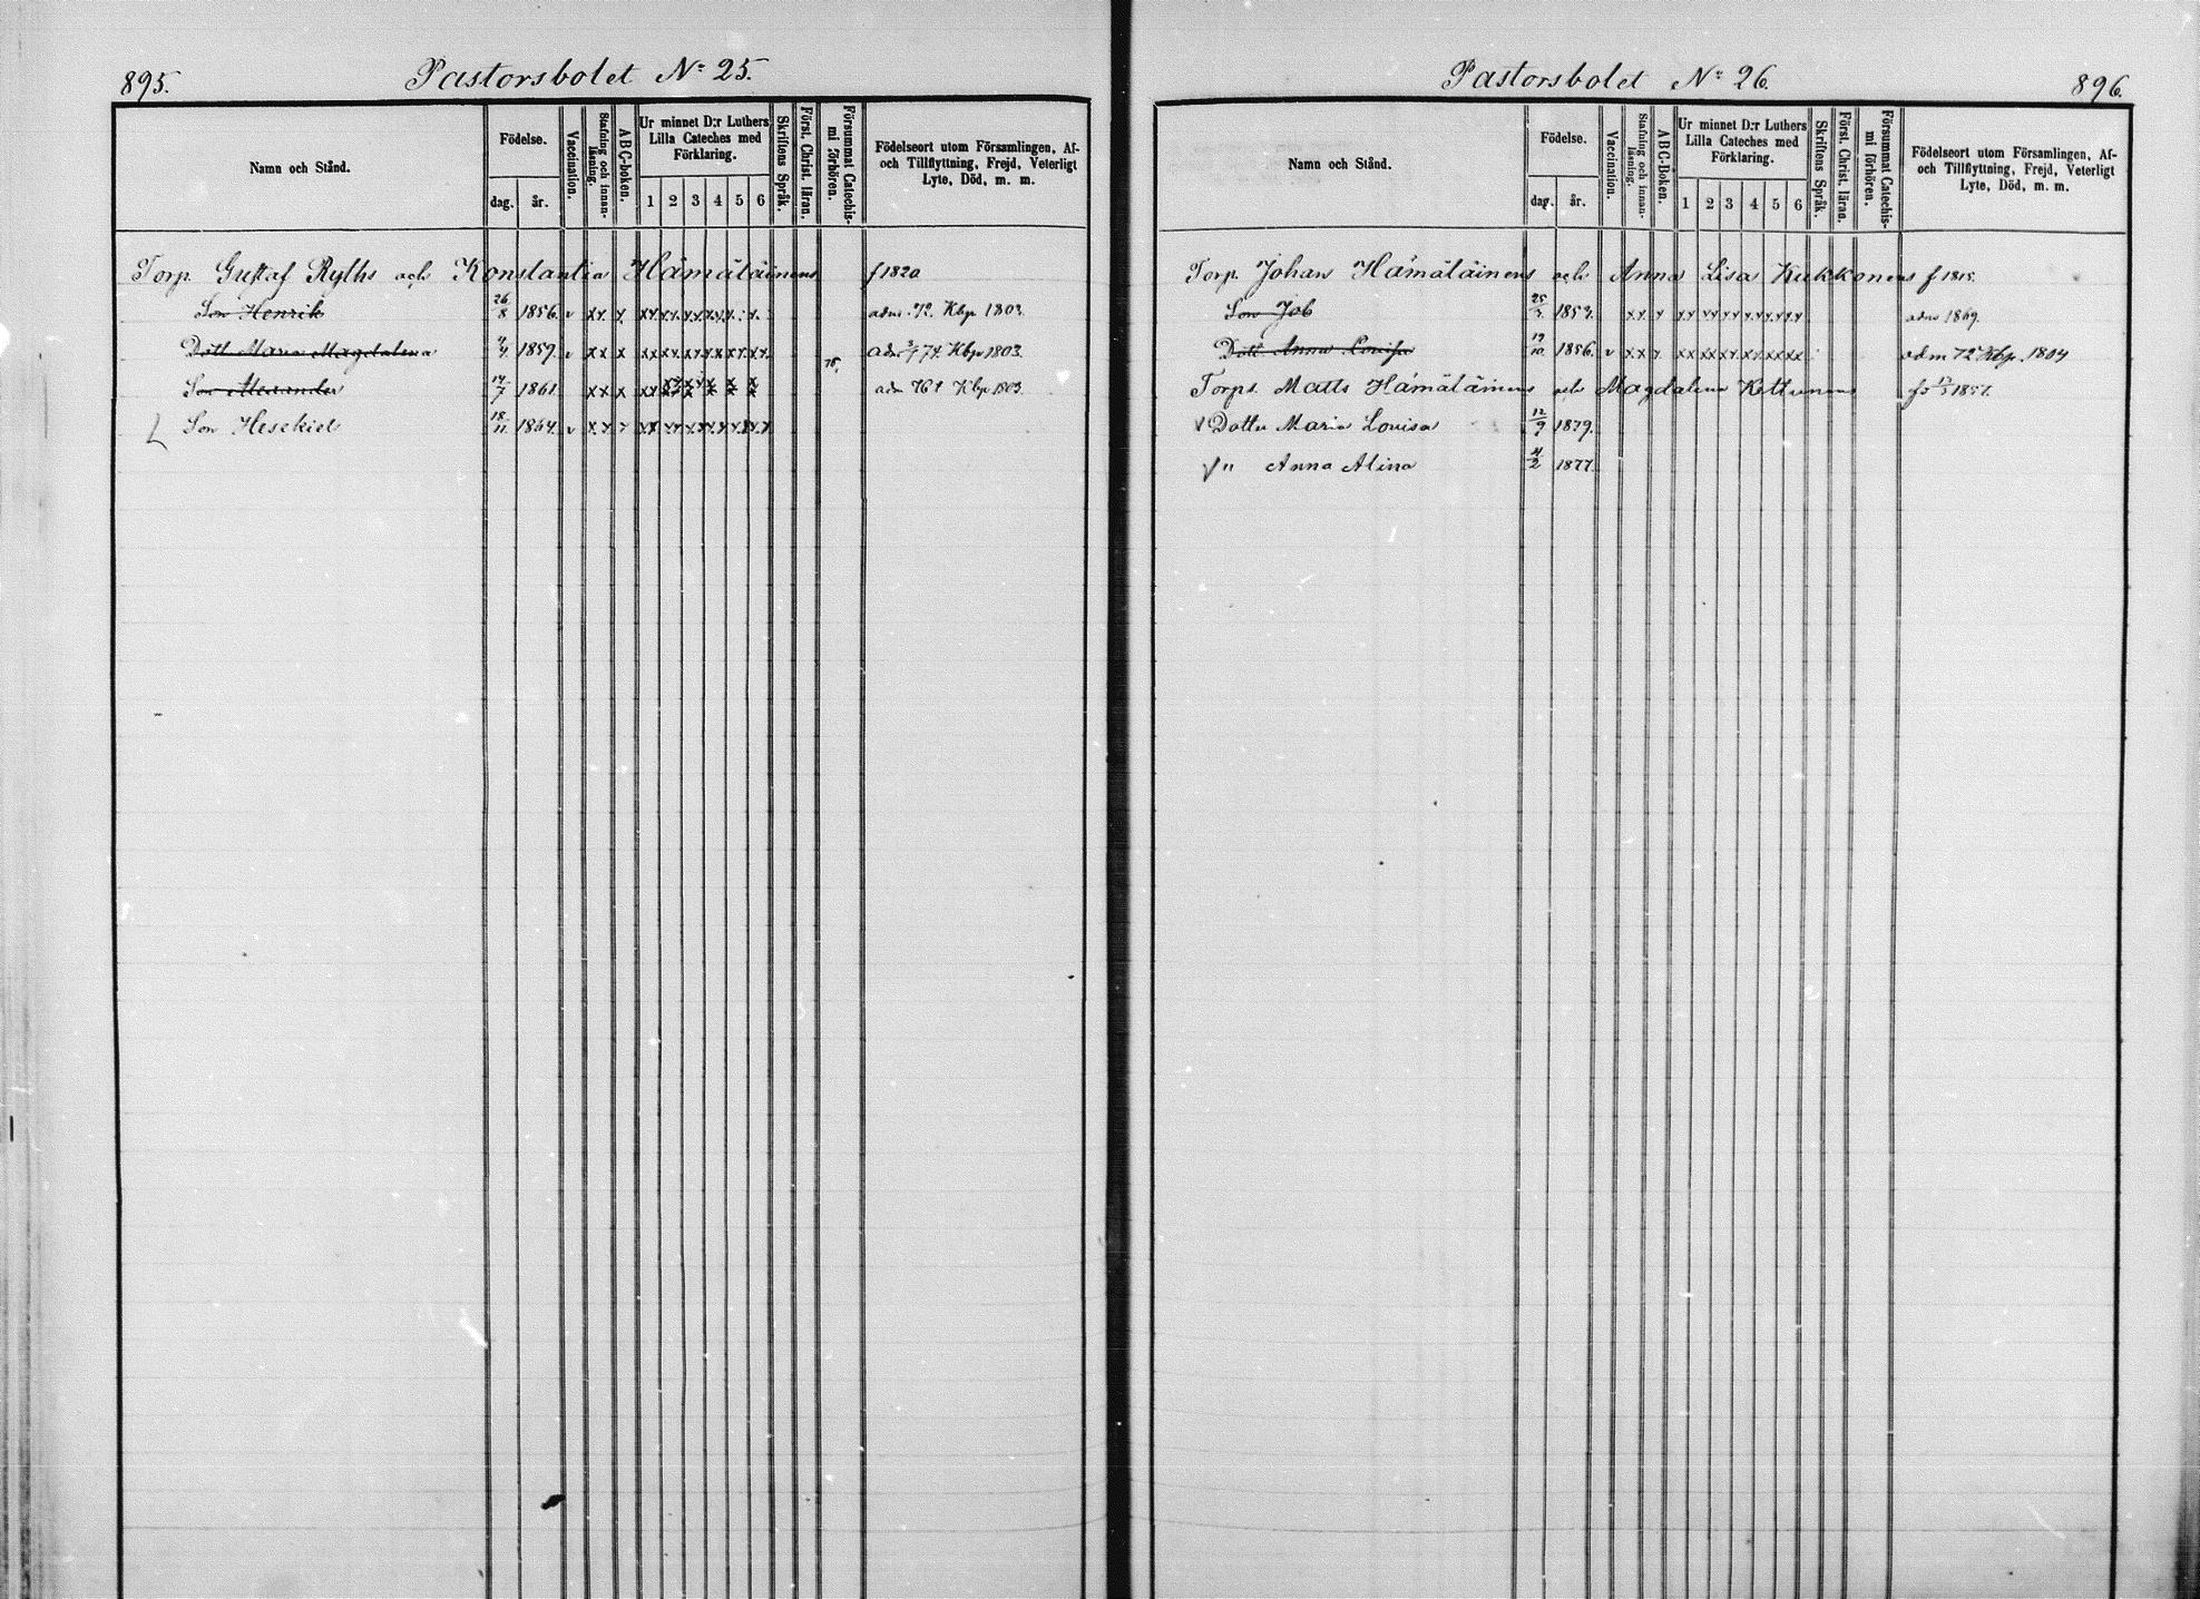 895.
Pastorsbolet No 25.
Namn och Stånd.
Födelse.
dag.
år.
Vaccination.
Stafning och innanläsning.
ABC-boken.
Ur minnet D:r Luthers
Lilla Cateches med
Förklaring.
1 2 3 4 5 6
Skriftens Språk.
Först. Christ. läran.
Försummat Catechismi förhören.
Födelseort utom Församlingen, Af-
och Tillflyttning, Frejd, Veterligt
Lyte, Död, m. m.
Torp. Gustaf Ryths och Konstantia Hämäläinens f 1820
Son Henrik 26/8 1856 v xx x adm. 72. Kbp 1803.
Dott Maria Magdalena 1859 v xx x adm 74. Kbp 1803.
Son Alexander 14/7 1861 xx x 78, adm Kbp 1803.
Son Hesekiel 18/11 1864 v
Pastorsbolet No 26.
896.
Namn och Stånd.
Födelse.
dag.
år.
Vaccination.
Stafning och innanläsning.
ABC-boken.
Ur minnet D:r Luthers
Lilla Cateches med
Förklaring.
1 2 3 4 5 6
Skriftens Språk.
Först. Christ. läran.
Försummat Catechismi förhören.
Födelseort utom Församlingen, Af-
och Tillflyttning, Frejd, Veterligt
Lyte, Död, m. m.
Torp. Johan Hämäläinens och Anna Lisa Kukkonens f 1815.
Son Job adm 1869.
Dott Anna Lovisa 19/10 1856. v adm 72 Kbp. 1804
Torps. Matts Hämäläinens och Magdalena Kettunens
Dotter Maria Lovisa 12/9 1879.
" Anna Alina 4/2 1877.